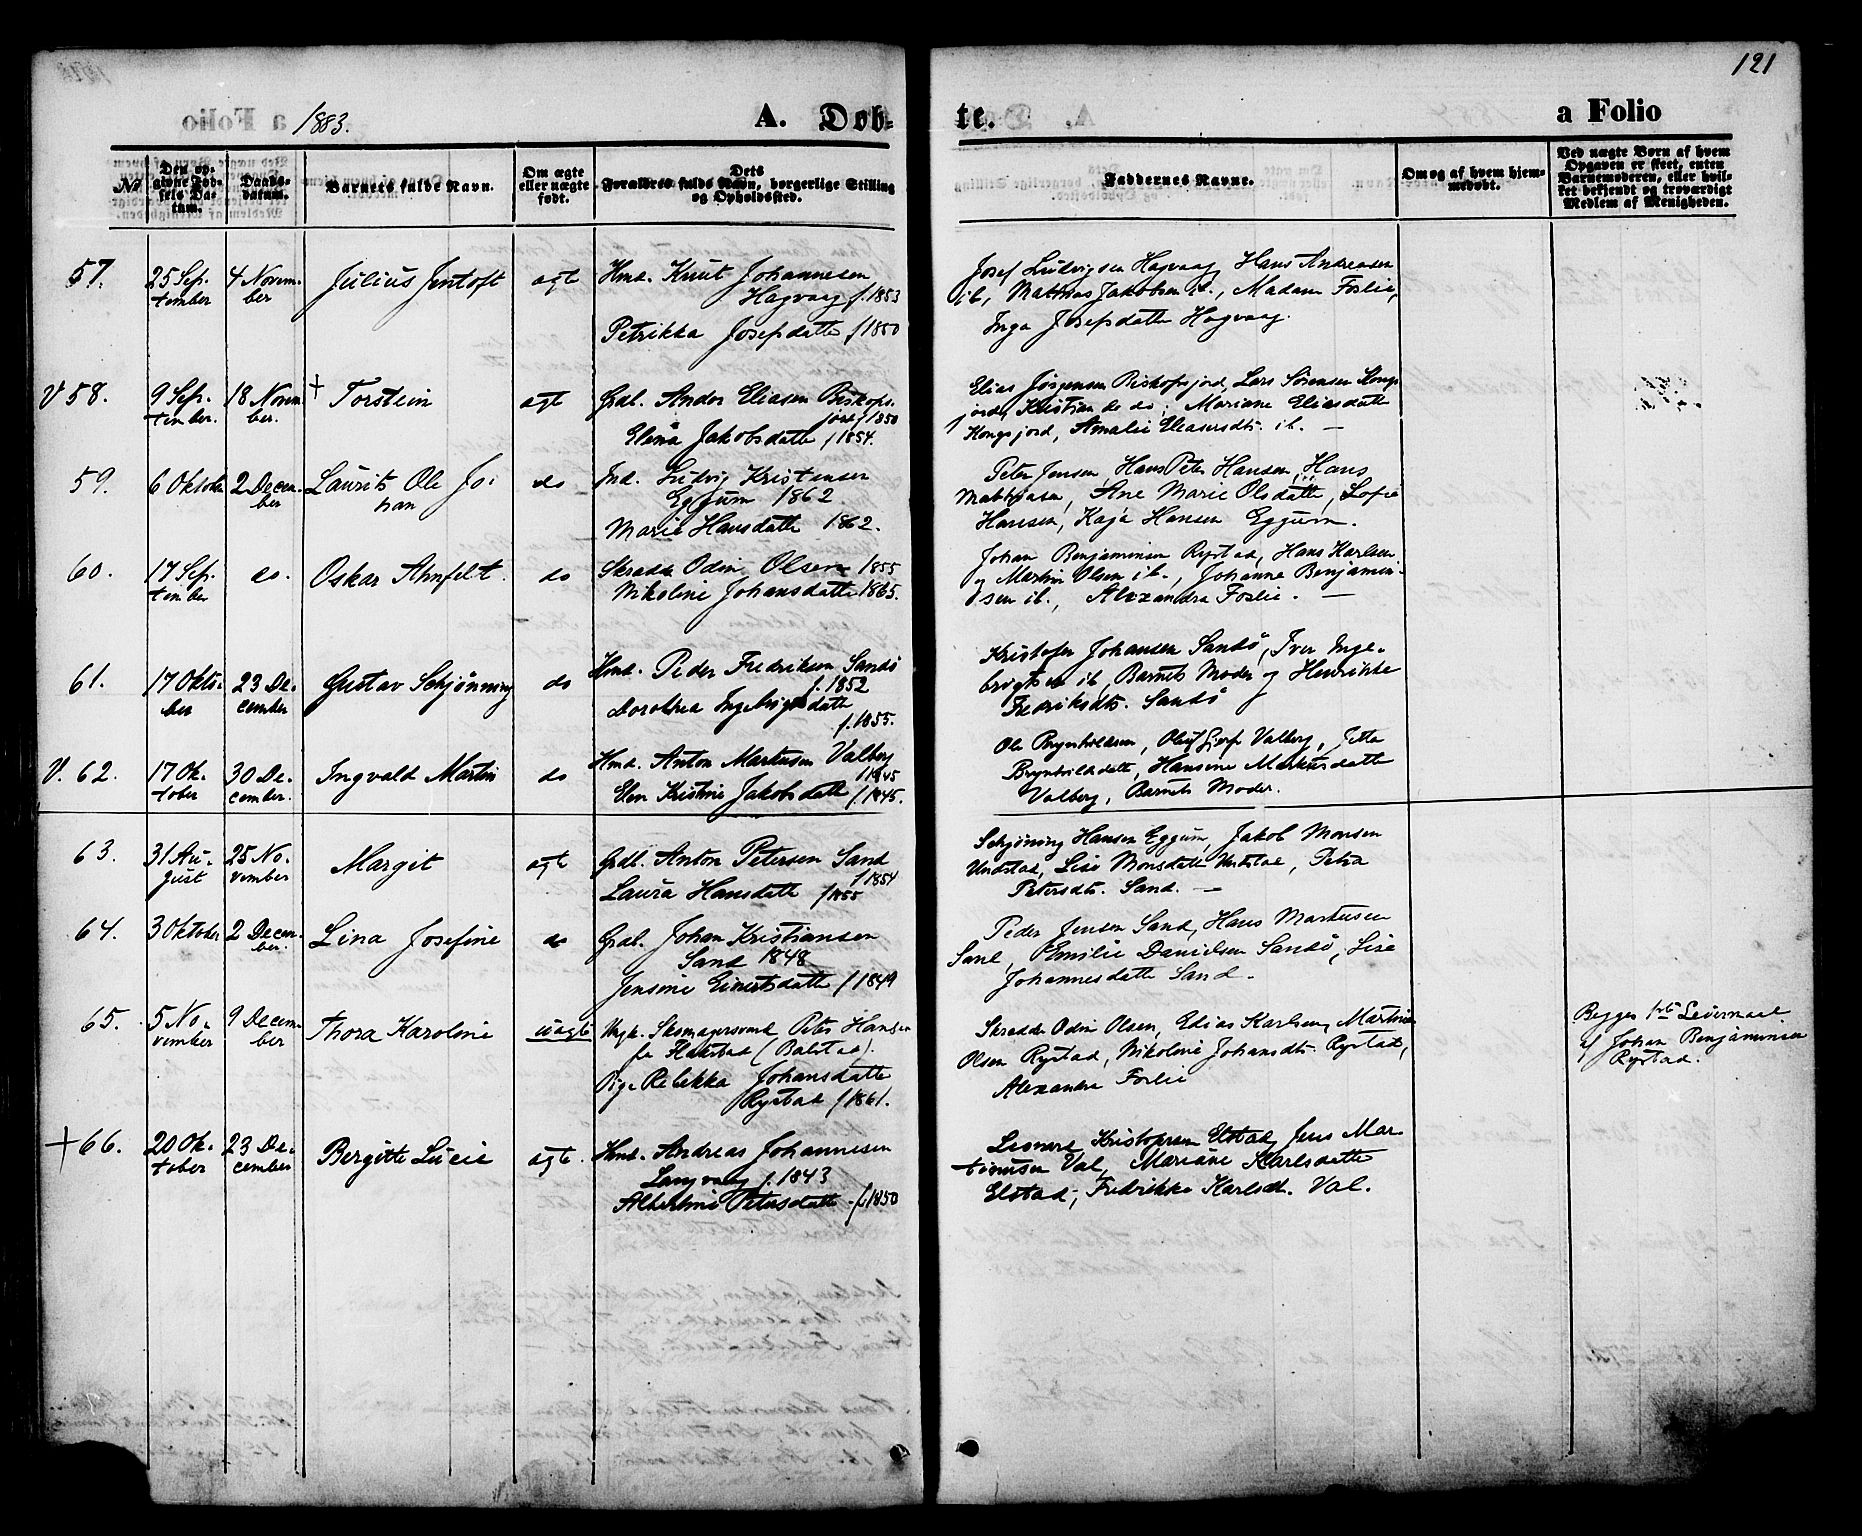 121
1883.
A. Døb-
te.
a Folio
No
Den op-
givne Fød-
sels Da-
tum.
Daabs-
datum.
Barnets fulde Navn.
Om ægte
eller uægte
født.
Dets
Forældres fulde Navn, borgerlige Stilling
og Opholdssted.
Faddernes Navne.
Om og af hvem hjem-
medøbt.
Ved uægte Børn af hvem
Opgaven er skeet, enten
Barnemoderen, eller hvil-
ket bekjendt og troværdigt
Medlem af Menigheden.
57.
25 Sep-
tember
4 Novem-
ber
Julius Jentoft
ægte
Hmd. Knut Johannesen
Hagvaag f. 1853
Petrikka Josefsdatte f 1850
Josef Ludvigsen Hagvaag, Hans Andreasen
ib, Mathias Jakobsen ib., Madam Foslie,
Inga Josefsdatte Hagvaag.
V 58.
9 Sep-
tember.
18 Novem-
ber.
+ Torstein
ægte
Grdb. Ander Eliasen Biskops-
jord f 1850
Elena Jakobsdatte f 1854.
Elias Jørgensen Biskopsjord, Lars Sørensen Kongs
jord, Kristian do do; Mariane Eliasdatte
Kongsjord, Amalie Eleasersdtr. ib. —
59.
6 Oktober
2 Decem-
ber
Laurits Ole Jo-
han
do
Ind. Ludvig Kristensen
Eggum 1862
Marie Hansdatte 1862.
Peter Jensen, Hans Peter Hansen, Hans
Mathiasen, Ane Marie Olsdatte, Sofie
Hansen, Kaja Hansen Eggum.
60.
17 Sep-
tember
do.
Oskar Ahnfelt.
do
Skrædd. Odin Olsen 1855
Nikoline Johansdatte 1865.
Johan Benjaminsen Rystad, Hans Karlsen
og Martin Olsen ib., Johanne Benjamin-
sen ib., Alexandra Foslie. —
61.
17 Okto-
ber
23 De-
cember
Gustav Schjønning
do
Hmd. Peder Fredriksen Sandø
f. 1852
Dorothea Ingebrigtsdatte
f. 1855.
Kristofer Johansen Sandø, Iver Inge-
brigtsen ib, Barnets Moder og Henrikke
Fredriksdtr. Sandø
V. 62.
17 Ok-
tober
30 De-
cember.
Ingvald Martin
do
Hmd. Anton Martinsen Valberg
f 1845
Elen Kristine Jakobsdatte f. 1845.
Ole Brynhildsen, Valberg, Jetta
Brynhildsdatte, Hansine Markusdatte
Valberg, Barnets Moder.
63.
31 Au-
gust
25 No-
vember
Margit
ægte
Grdb. Anton Petersen Sand
f 1854
Laura Hansdatte f 1855
Schjøning Hansen Eggum, Jakob Monsen
Undstad, Lise Monsdatte Undstad, Petra
Petersdtr. Sand. —
64.
3 Oktober
2 Decem-
ber.
Lina Josefine
do
Grdb. Johan Kristiansen
Sand 1848
Jensine Einertsdatte f 1849
Peder Jensen Sand, Hans Martinsen
Sand, Emilie Danielsen Sandø, Lise
Johannesdatte Sand.
65.
5 No-
vember
9 Decem-
ber
Thora Karoline
uægte
Ungk. Skomagersvend Peter Hansen
fr Flakstad (Balstad).
Pige Rebekka Johansdatte
Rystad f 1861.
Skrædd. Odin Olsen, Edias Karlsen, Martine
Olsen Rystad, Nikoline Johansdtr. Rystad,
Alexandra Foslie
Begges 1ste Leiermaal
af Johan Benjaminsen
Rystad.
+ 66.
20 Ok-
tober
23 De-
cember
Bergitte Lucie
ægte.
Hmd. Andreas Johannesen
Langvaag f. 1843
Albertine Petersdatte f 1850
Leonard Kristophersen Elstad, Jens Mar-
tinusen Val, Mariane Karlsdatte
Elstad, Fredrikke Karlsd. Val.